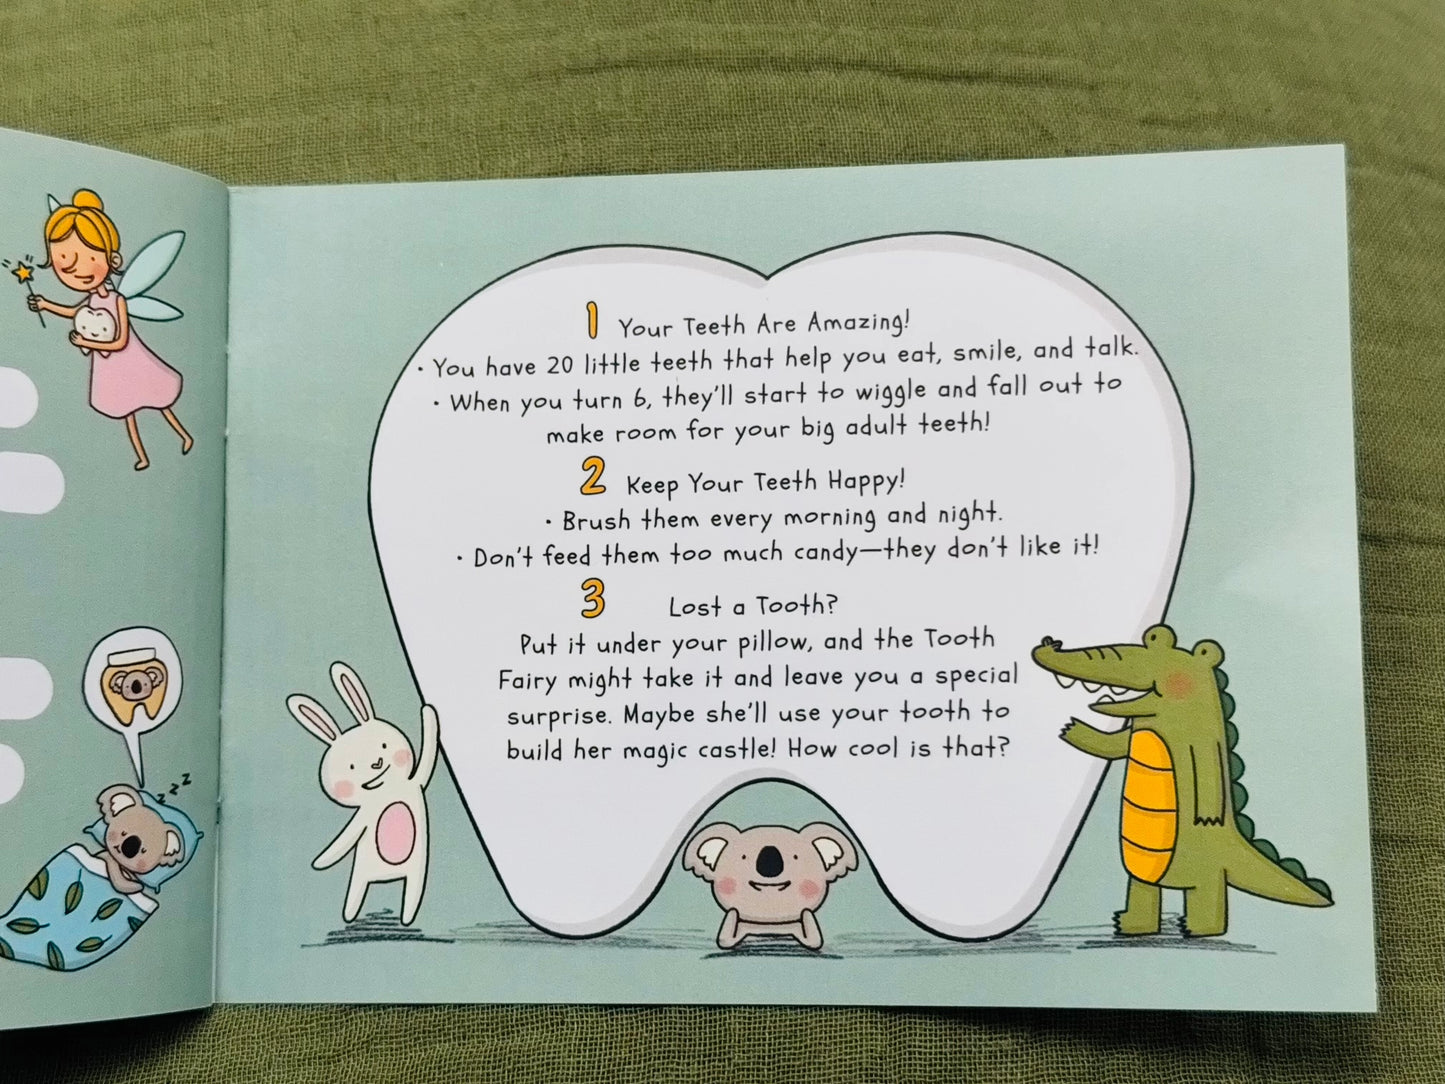 z z z
1 Your Teeth Are Amazing!
• You have 20 little teeth that help you eat, smile, and talk.
• When you turn 6, they'll start to wiggle and fall out to
make room for your big adult teeth!
2 Keep Your Teeth Happy!
• Brush them every morning and night.
• Don't feed them too much candy—they don't like it!
3 Lost a Tooth?
Put it under your pillow, and the Tooth
Fairy might take it and leave you a special
surprise. Maybe she'll use your tooth to
build her magic castle! How cool is that?